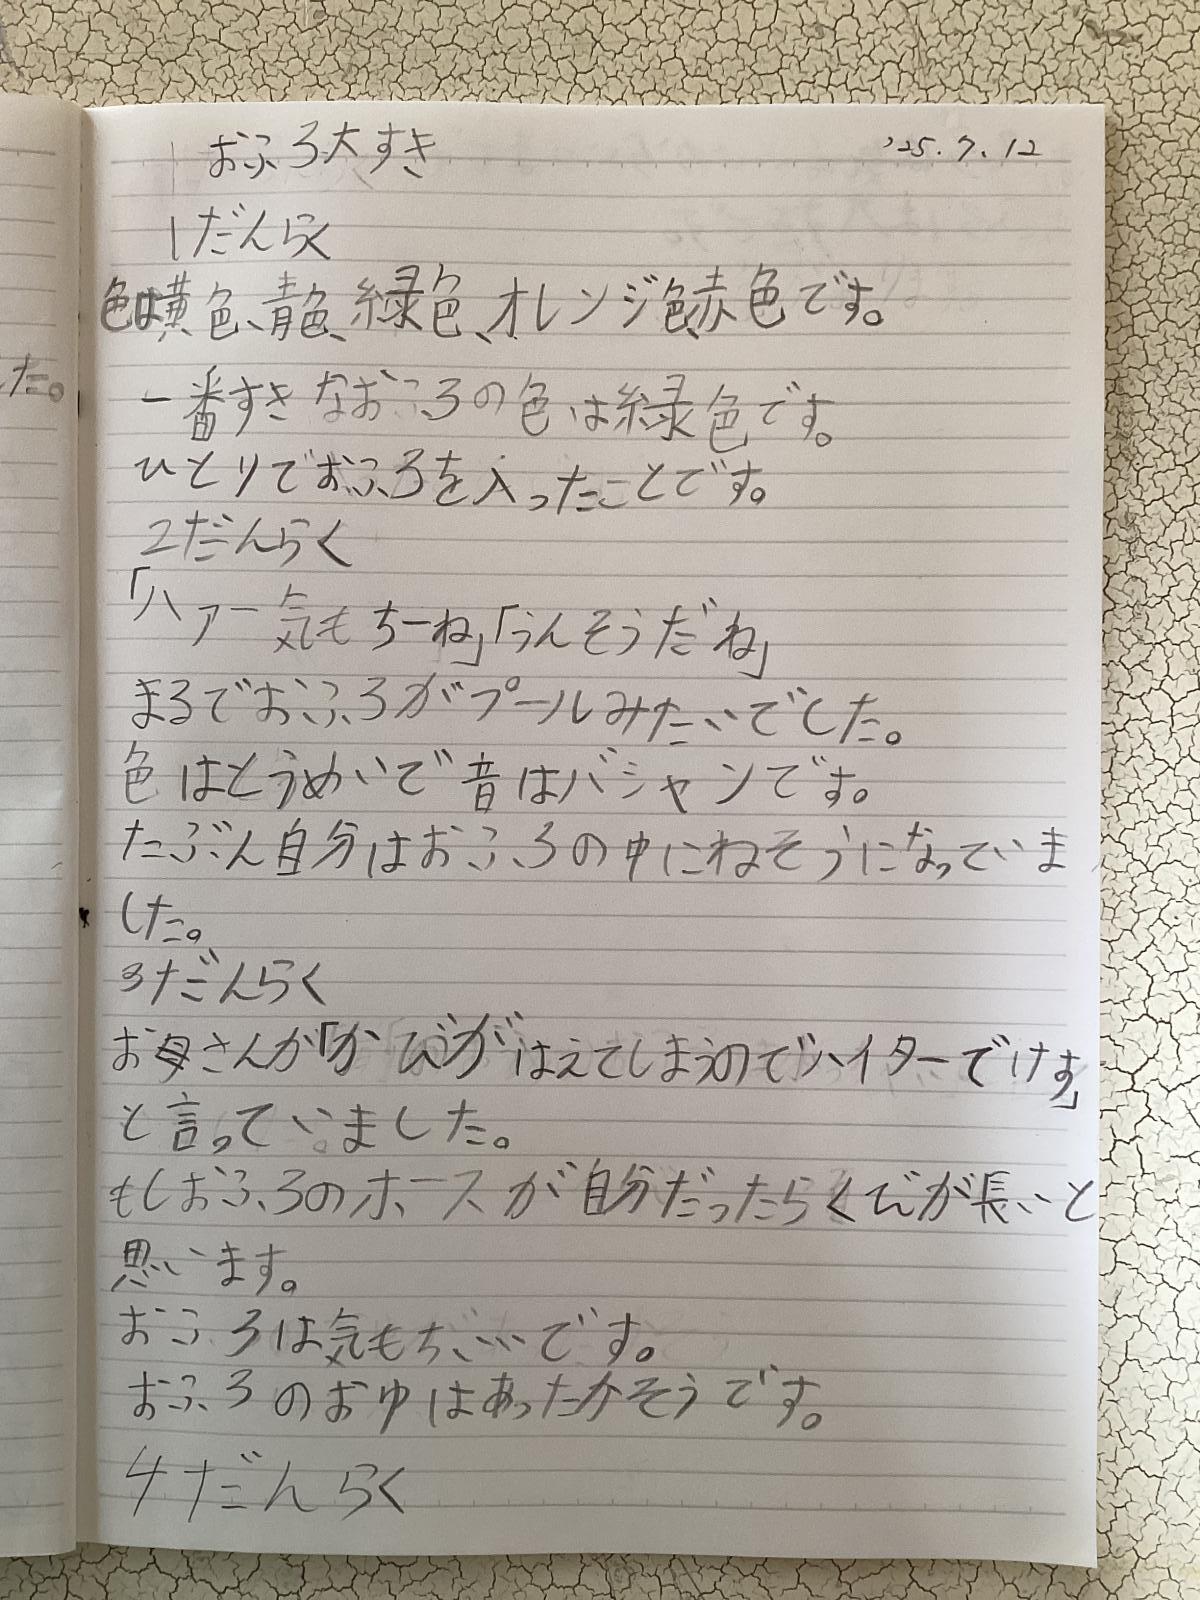 おふろ大すき '25.7.12
1だんらく
色は黄色、青色、緑色、オレンジ色、赤色です。
一番すきなおふろの色は緑色です。
ひとりでおふろを入ったことです。
2だんらく
「ハアー気もちーね」「うんそうだね」
まるでおふろがプールみたいでした。
色はとうめいで音はバシャンです。
たぶん自分はおふろの中にねそうになっていま
した。
3だんらく
お母さんが「かびがはえてしまうのでハイターでけす」
と言っていました。
もしおふろのホースが自分だったらくびが長いと
思います。
おふろは気もちいいです。
おふろのおゆはあったかそうです。
4だんらく
た。